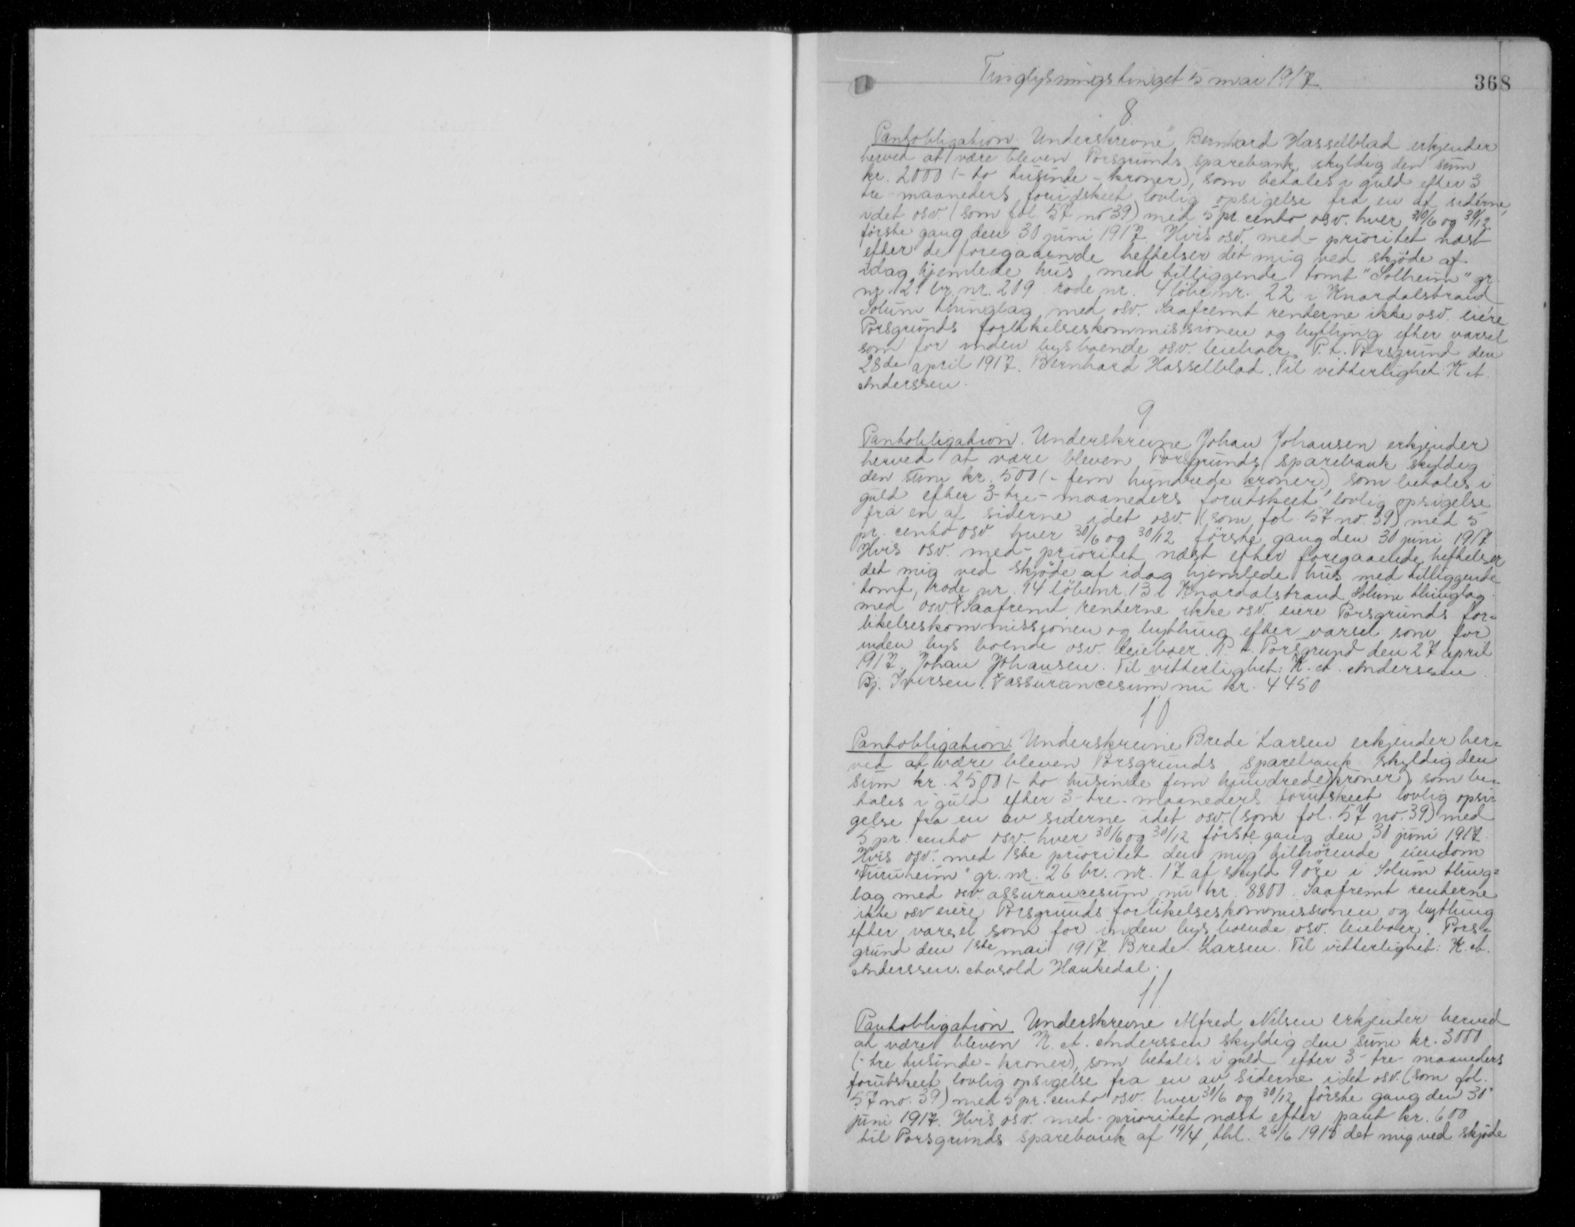 Tinglysningstinget 5 mai 1917.
368
8
Pantobligation. Underskrevne Bernhard Hasselblad erkjender
herved at være bleven Porsgrunds sparebank skyldig den sum
kr. 2000 (- to tusinde - kroner), som betales i guld efter 3
tre maaneders forutskeet lovlig opsigelse fra en af siderne,
idet osv. (som fol 57 no 39) med 5 pr cento osv. hver 30/6 og 30/12
første gang den 30 juni 1917. Hvis osv. med - prioritet næst
efter de foregaaende heftelser det mig ved skjøde af
idag hjemlede hus med tilliggende tomt "Solheim" gr.
nr. 12 br. nr. 209 rode nr. 4 løbe nr. 22 i Knardalstrand
Solum thinglag med osv. Saafremt renterne ikke osv. eiere
Porsgrunds forlikelseskommissionen og bytting efter varsel
som for inden bys boende osv. leieboer. P.t. Porsgrund den
28de april 1917. Bernhard Hasselblad. Til vitterlighet: K. A.
Anderssen.
9
Pantobligation. Underskrevne Johan Johansen erkjender
herved at være bleven Porsgrunds sparebank skyldig
den sum kr. 500 (- fem hundrede kroner) som betales i
guld efter 3 - tre - maaneders forutskeet lovlig opsigelse
fra en af siderne idet osv. (som fol 57 no. 39) med 5
pr. cento osv hver 30/6 og 30/12 første gang den 30 juni 1917
Hvis osv. med - prioritet næst efter foregaaende heftelser
det mig ved skjøde af idag hjemlede hus med tilliggende
tomt, rode nr. 14 løbenr. 13 i Knardalstrand Solum thinglag
med osv. Saafremt renterne ikke osv. eiere Porsgrunds for-
likelseskommissionen og bytting efter varsel som for
inden bys boende osv. leieboer. P.t. Porsgrund den 27 april
1917. Johan Johansen. Til vitterlighet: K. A. Anderssen.
Bj. Iversen. assurancesum nu kr. 4450
10
Pantobligation. Underskrevne Brede Larsen erkjender her-
ved at være bleven Porsgrunds sparebank skyldig den
sum kr. 2500 (- to tusinde fem hundrede kroner) som be-
tales i guld efter 3 - tre - maaneders forutskeet lovlig opsi-
gelse fra en av siderne idet osv. (som fol. 57 no. 39) med
5 pr. cento osv. hver 30/6 og 30/12 første gang den 30 juni 1917.
Hvis osv. med 1ste prioritet den mig tilhørende eiendom
"Furuheim" gr. nr. 26 br. nr. 17 af skyld 9 øre i Solum thing-
lag med osv. assurancesum nu kr. 8800. Saafremt renterne
ikke osv eiere Porsgrunds forlikelseskommissionen og bytting
efter varsel som for inden bys boende osv. leieboer. Pors-
grund den 1ste mai 1917. Brede Larsen. Til vitterlighet: K. A.
Anderssen. Arnold Haukedal.
11
Pantobligation. Underskrevne Alfred Nilsen erkjender herved
at være bleven K. A. Anderssen skyldig den sum kr. 3000
(- tre tusinde - kroner), som betales i guld efter 3 - tre - maaneders
forutskeet lovlig opsigelse fra en av siderne idet osv. (som fol.
57 no. 39) med 5 pr. cento osv. hver 30/6 og 30/12 første gang den 30
juni 1917. Hvis osv. med - prioritet næst efter pant kr. 600
til Porsgrunds sparebank af 19/4, thl. 26/6 1915 det mig ved skjøde